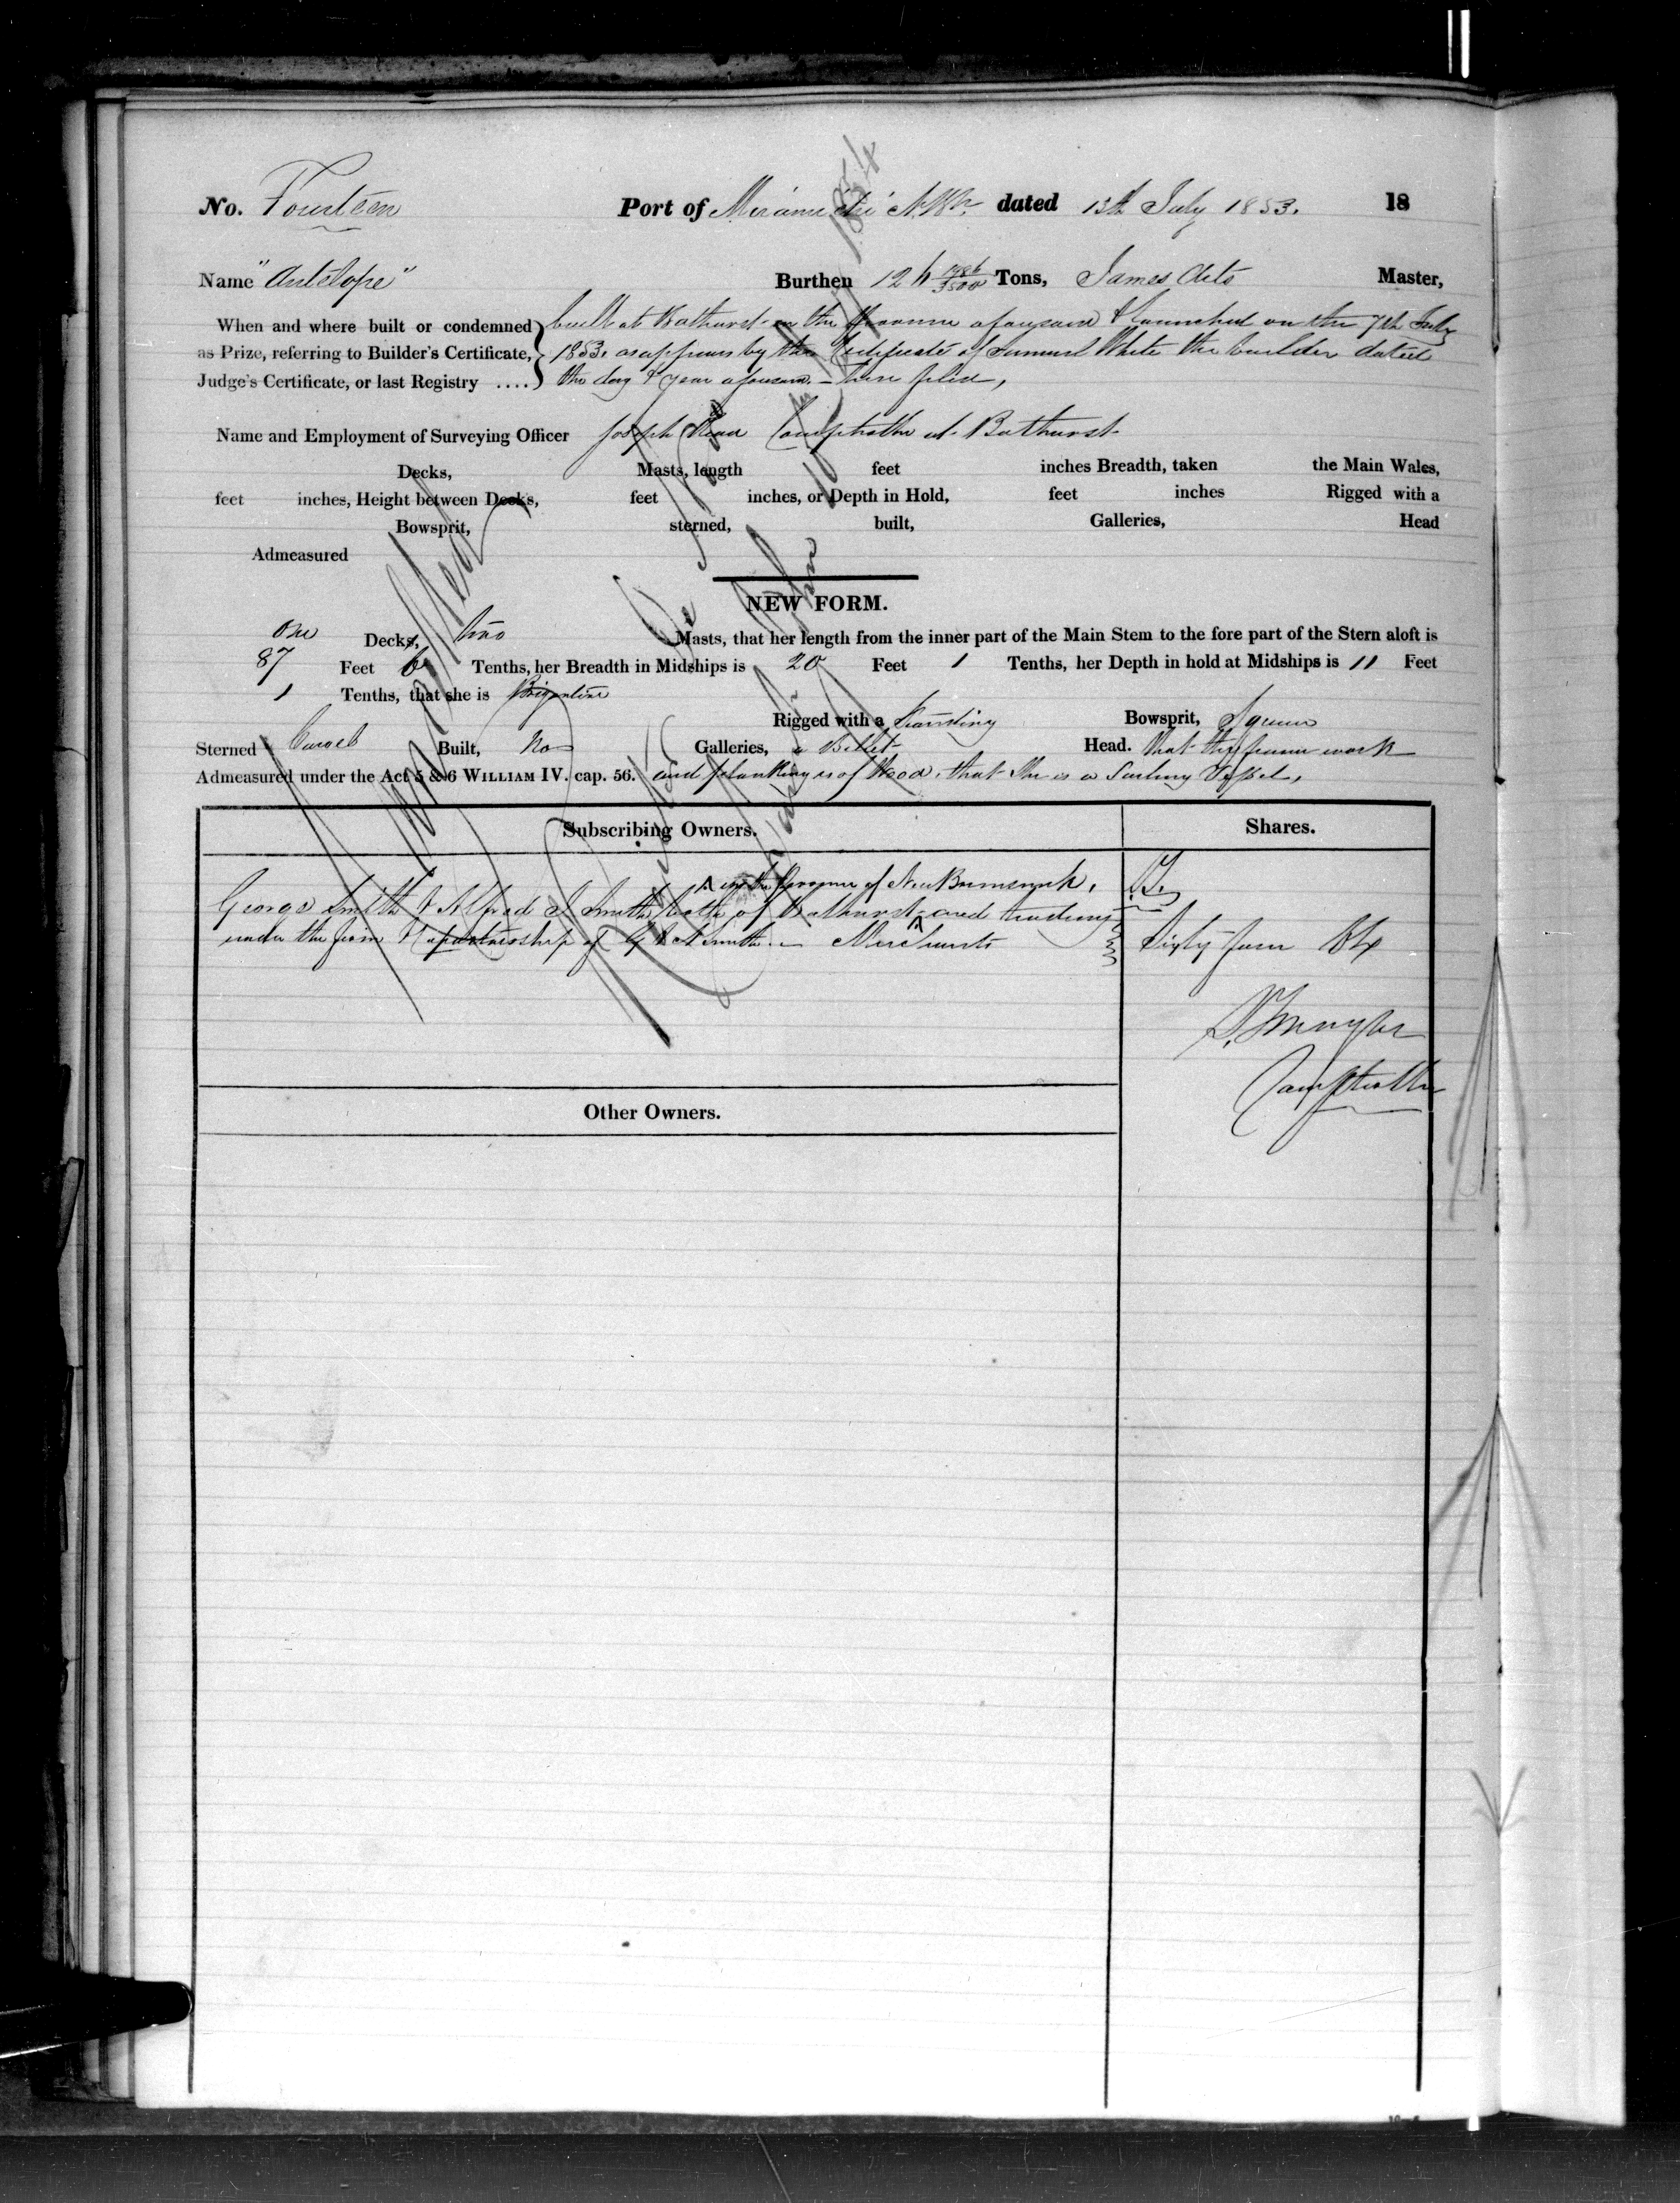 No. Fourteen Port of Miramichi N.B. dated 13th July 1853. 18
Name "Antelope" Burthen 126 Tons, James Master,
When and where built or condemned as Prize, referring to Builder's Certificate, Judge's Certificate, or last Registry ....
built at Bathurst in the Province aforesaid & launched on the 7th July
1853. as appears by the Certificate of Samuel White the builder dated
the day & year aforesaid - here filed,
Name and Employment of Surveying Officer Joseph Read Comptroller at Bathurst
Decks, Masts, length feet inches Breadth, taken the Main Wales,
feet inches, Height between Decks, feet inches, or Depth in Hold, feet inches Rigged with a
Bowsprit, sterned, built, Galleries, Head
Admeasured
NEW FORM.
One Decks, two Masts, that her length from the inner part of the Main Stem to the fore part of the Stern aloft is
87 Feet 6 Tenths, her Breadth in Midships is 20 Feet 1 Tenths, her Depth in hold at Midships is 11 Feet
1 Tenths, that she is Brigantine
Rigged with a Standing Bowsprit, Square
Sterned Carvel Built, No Galleries, a Billet Head. that the frame work
Admeasured under the Act 5 & 6 WILLIAM IV. cap. 56. and planking is of Wood. that She is a Sailing Vessel,
Subscribing Owners. Shares.
in the Province of New Brunswick,
George Smith & Alfred Smith both of Bathurst and trading
under the firm & copartnership of G & A Smith. - Merchants Sixty four 64
Comptroller
Other Owners.
Cancelled
1854